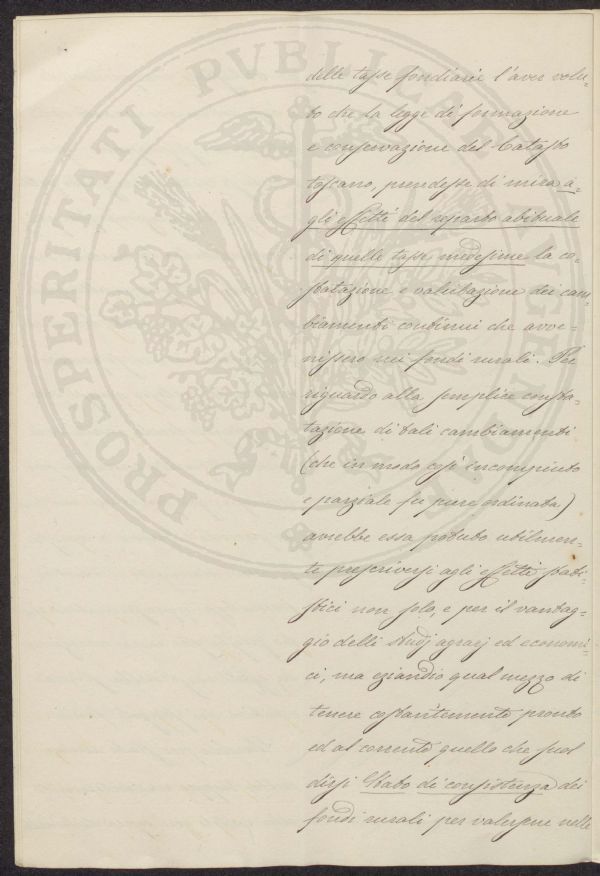 delle tasse fondiarie l'aver volu-
to che la legge di formazione
e conservazione del Catasto
toscano, prendesse di mira a-
gli effetti del reparto abituale
di quelle tasse medesime la co-
statazione e valutazione dei cam
biamenti continui che avve-
nissero nei fondi rurali. Per
riguardo alla semplice consta-
tazione di tali cambiamenti
(che in modo così incompiuto
e parziale fu pure ordinata)
avrebbe essa potuto utilmen-
te prescriversi agli effetti stati-
stici non solo, e per il vantag-
gio delli studj agrarj ed economi-
ci, ma eziandio qual mezzo di
tenere costantemente pronto
ed al corrente quello che suol
dirsi Stato di consistenza dei
fondi rurali per valersene nelle
PROSPERITATI PVBLICAE AVGENDAE